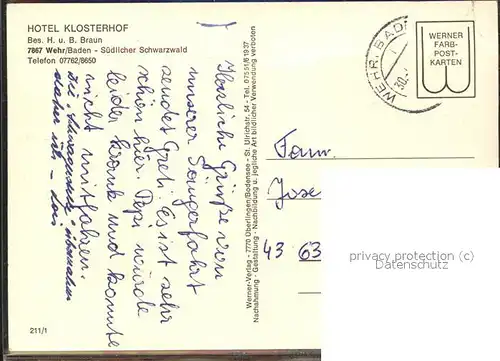 HOTEL KLOSTERHOF
Bes. H. u. B. Braun
7867 Wehr/Baden - Südlicher Schwarzwald
Telefon 07762/8650
Herzliche Grüße von
unserer Sängerfahrt
sendet Greti. Es ist sehr
schön hier. Pepi wurde
leider krank und konnte
nicht mitfahren.
die "Anwesende" übernahm
daher ich -
Werner-Verlag - 7770 Überlingen/Bodensee - St. Ulrichstr. 54 - Tel. 07551/61937
Nachahmung - Gestaltung - Nachbildung u. jegliche Art bildlicher Verwendung verboten
WEHR, BAD
30.
WERNER
FARB-
POST-
KARTEN
Fam.
Jose
43 63
privacy protection
Datenschutz
211/1